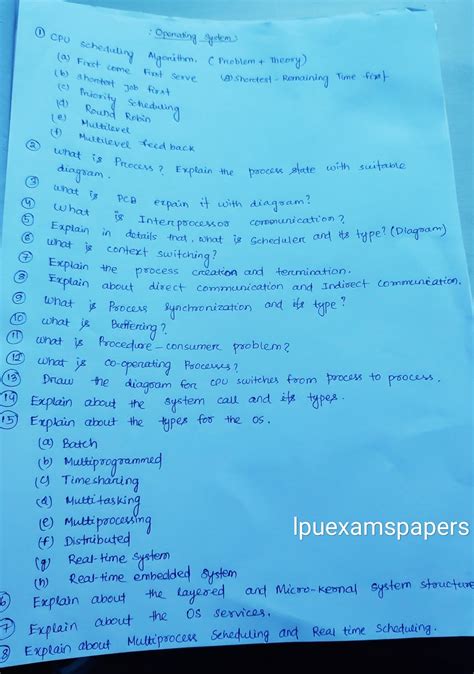 : Operating System :
① CPU scheduling Algorithm. (Problem + Theory)
(a) First come First serve (g) Shortest - Remaining Time first)
(b) shortest job first
(c) Priority Scheduling
(d) Round Robin
(e) Multilevel
(f) Multilevel feed back
② what is Process? Explain the process state with suitable
diagram.
③ what is PCB expain it with diagram?
④ what is Interprocessor communication?
⑤ Explain in details that, what is Scheduler and its type? (Diagram)
⑥ what is context switching?
⑦ Explain the process creation and termination.
⑧ Explain about direct communication and Indirect communication.
⑨ what is Process synchronization and its type?
⑩ what is Buffering?
⑪ what is Procedure - consumer problem?
⑫ what is co-operating Processes?
⑬ Draw the diagram for CPU switches from process to process.
⑭ Explain about the system call and its types.
⑮ Explain about the types for the OS.
(a) Batch
(b) Multiprogrammed
(c) Timesharing
(d) Multitasking
(e) Multiprocessing
(f) Distributed
(g) Real-time System
(h) Real-time embedded system
lpuexamspapers
6 Explain about the layered and Micro-kernal system structure
7 Explain about the OS services.
8 Explain about Multiprocess Scheduling and Real time Scheduling.